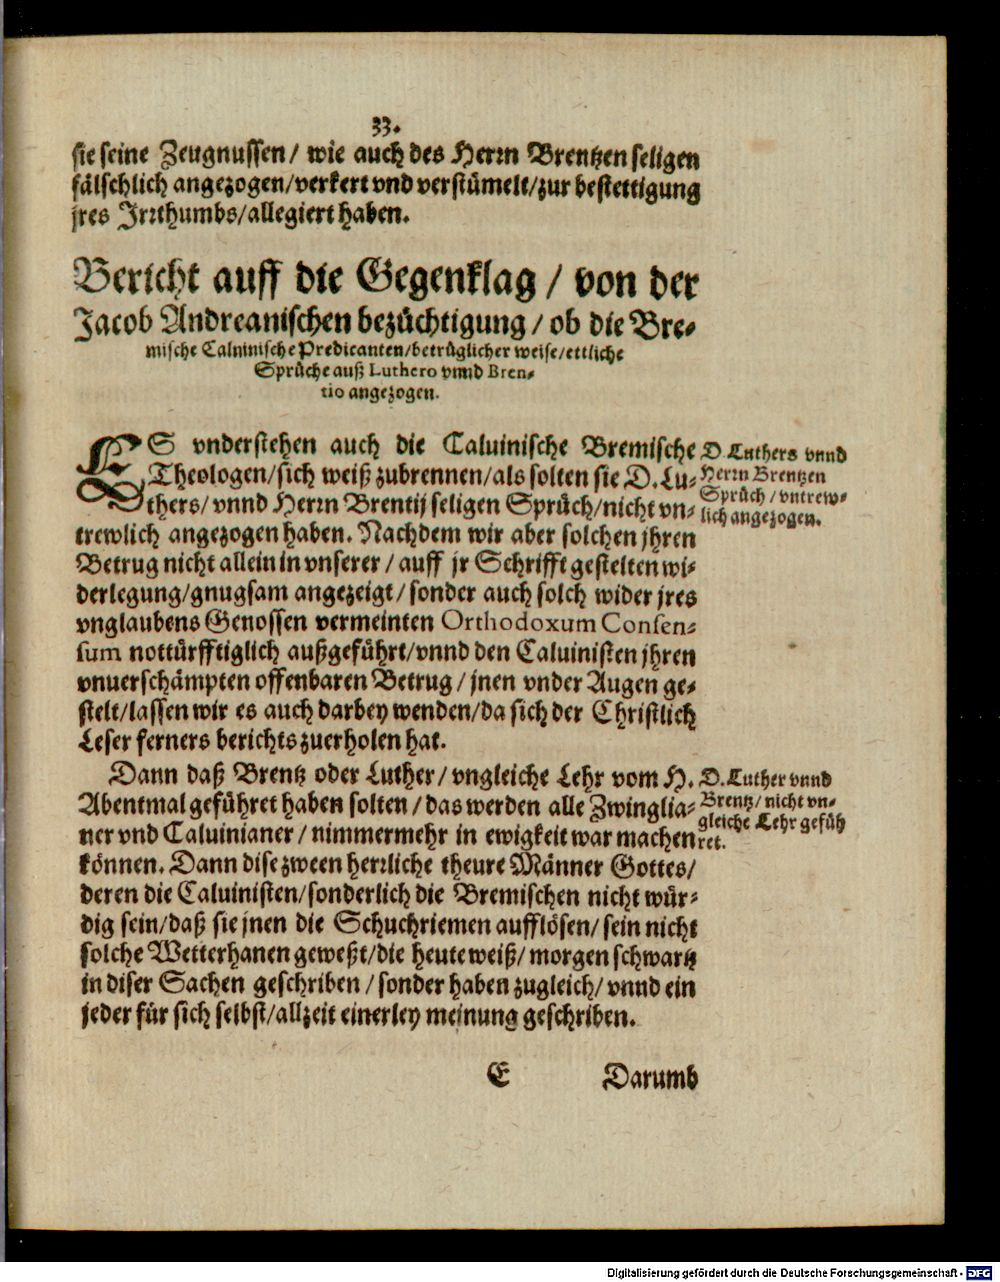 33.
sie seine Zeugnussen/ wie auch des Herrn Brentzen seligen
fälschlich angezogen/verkert vnd verstümelt/zur bestettigung
jres Jrrthumbs/allegiert haben.
Bericht auff die Gegenklag / von der
Jacob Andreanischen bezüchtigung / ob die Bre-
mische Caluinische Predicanten/betrüglicher weise/ettliche
Sprüche auß Luthero vnnd Bren-
tio angezogen.
ES vnderstehen auch die Caluinische Bremische
Theologen/sich weiß zubrennen/als solten sie D.Lu-
thers/ vnnd Herrn Brentij seligen Sprüch/nicht vn-
trewlich angezogen haben. Nachdem wir aber solchen jhren
Betrug nicht allein in vnserer / auff jr Schrifft gestelten wi-
derlegung/gnugsam angezeigt/ sonder auch solch wider jres
vnglaubens Genossen vermeinten Orthodoxum Consen-
sum nottürfftiglich außgeführt/vnnd den Caluinisten jhren
vnuerschämpten offenbaren Betrug / jnen vnder Augen ge-
stelt/lassen wir es auch darbey wenden/da sich der Christlich
Leser ferners berichts zuerholen hat.
D. Luthers vnnd
Herrn Brentzen
Sprüch / vntrew-
lich angezogen.
Dann daß Brentz oder Luther/ vngleiche Lehr vom H.
Abentmal geführet haben solten / das werden alle Zwinglia-
ner vnd Caluinianer / nimmermehr in ewigkeit war machen
können. Dann dise zween herrliche theure Männer Gottes/
deren die Caluinisten/sonderlich die Bremischen nicht wür-
dig sein/daß sie jnen die Schuchriemen aufflösen/ sein nicht
solche Wetterhanen geweßt/die heute weiß/ morgen schwartz
in diser Sachen geschriben / sonder haben zugleich/ vnnd ein
jeder für sich selbst/allzeit einerley meinung geschriben.
D. Luther vnnd
Brentz/ nicht vn-
gleiche Lehr gefüh
ret.
E Darumb
Digitalisierung gefördert durch die Deutsche Forschungsgemeinschaft - DFG